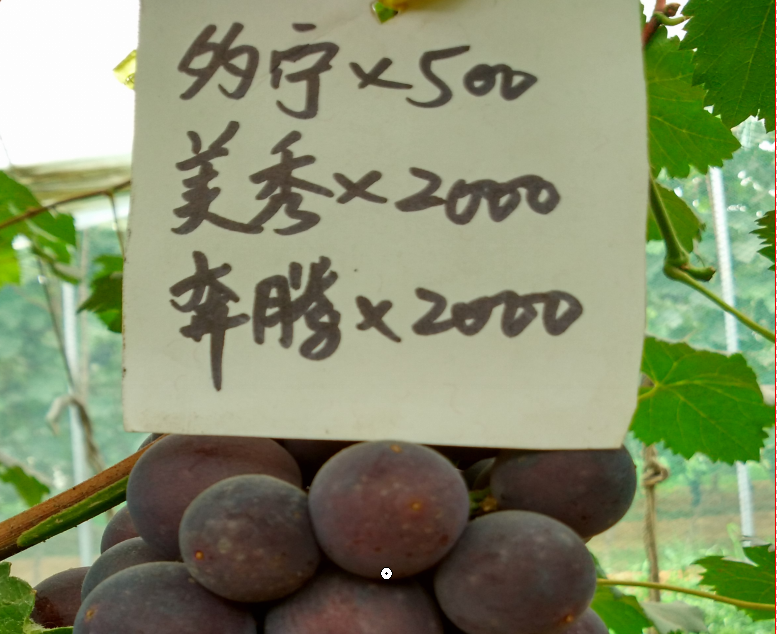 约宁×500
美秀×2000
奔腾×2000